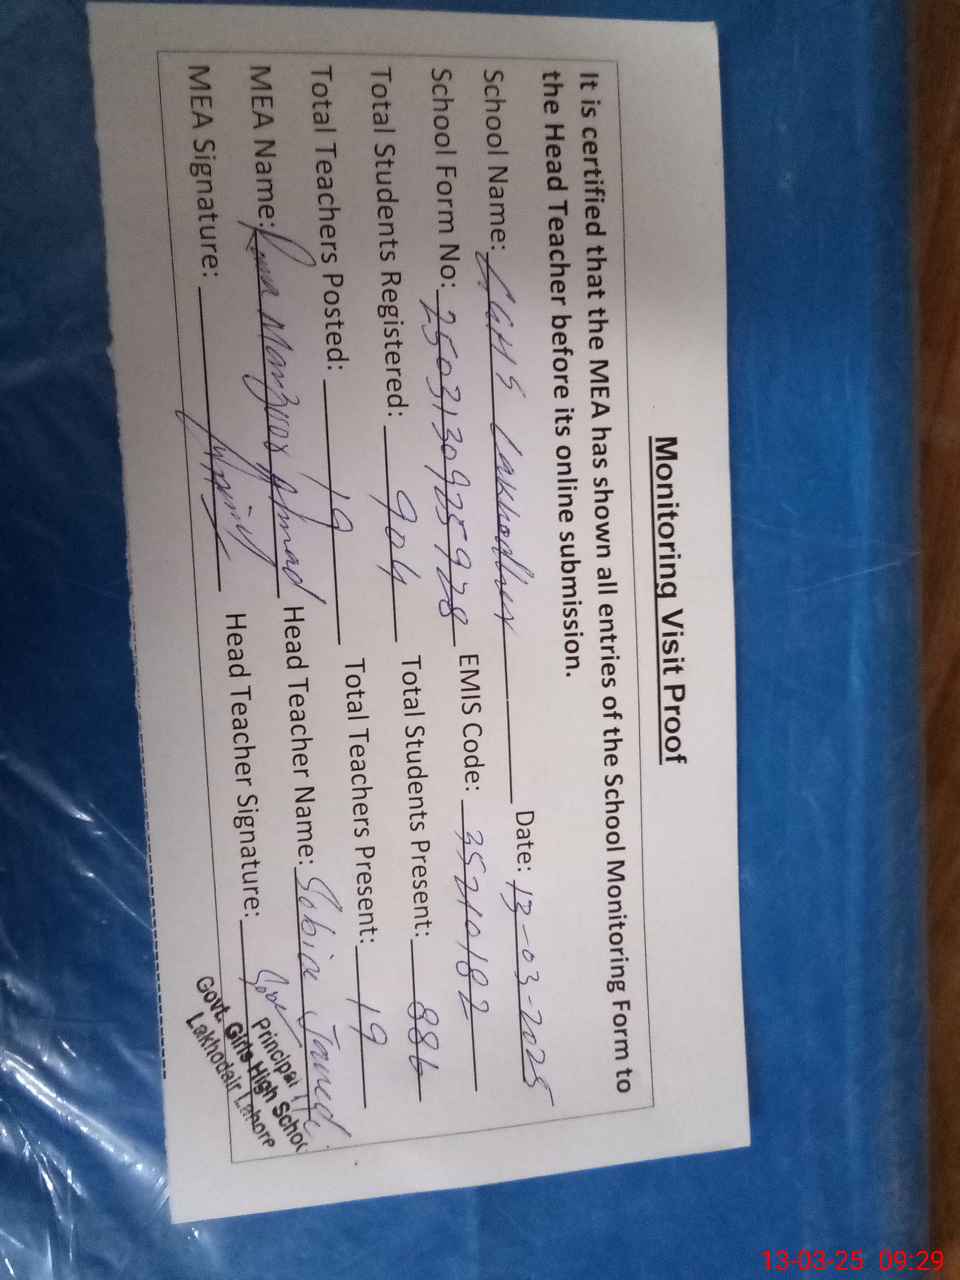 Monitoring Visit Proof
It is certified that the MEA has shown all entries of the School Monitoring Form to
the Head Teacher before its online submission.
School Name: GGHS Lakhodher Date: 13-03-2025
School Form No: 25031309259728 EMIS Code: 35210182
Total Students Registered: 904 Total Students Present: 886
Total Teachers Posted: 19 Total Teachers Present: 19
MEA Name: Manzoor Ahmad Head Teacher Name: Sobia Javed
MEA Signature: Head Teacher Signature:
Principal
Govt. Girls High School
Lakhodair Lahore
13-03-25 09:29